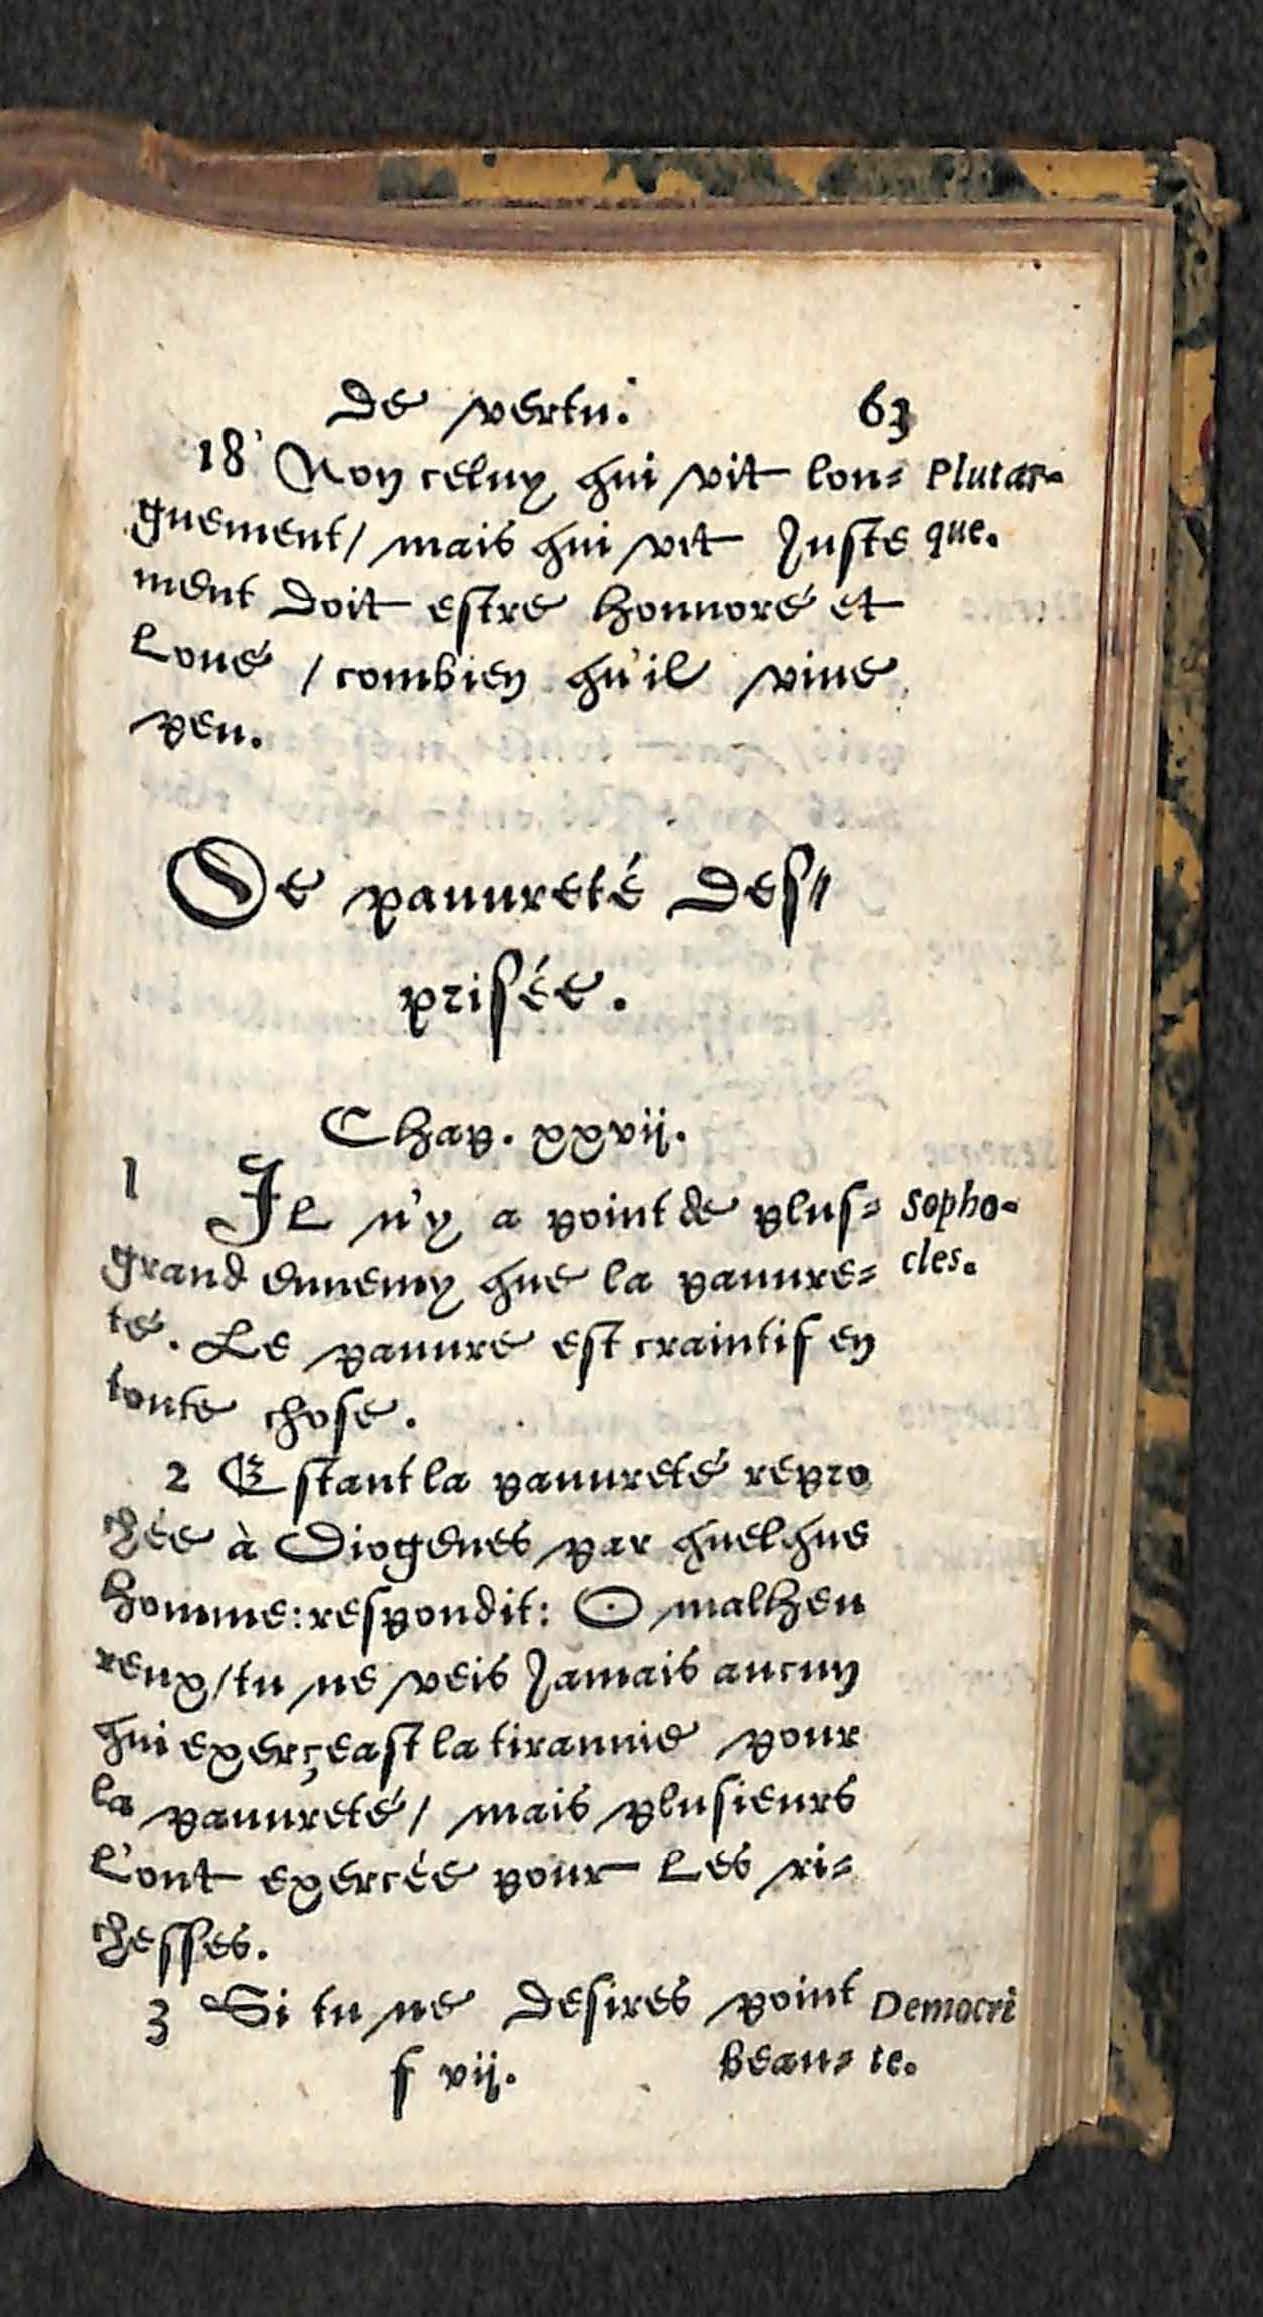 de vertu. 63
18 Non celuy qui vit lon= Plutar-
guement/ mais qui vit Juste que.
ment doit estre honnoré et
loué / combien qu'il viue
peu.
De pauureté des=
prisée.
Chap. xxvij.
1 Il n'y a point de plus= Sopho-
grand ennemy que la pauure= cles.
té. Le pauure est craintif en
toute chose.
2 Estant la pauureté repro
chée à Diogenes par quelque
homme: respondit: O malheu
reux/ tu ne veis Jamais aucun
qui exerçeast la tirannie pour
la pauureté/ mais plusieurs
l'ont exercée pour les ri=
chesses.
3 Si tu ne desires point Democri
f vij. beau= te.